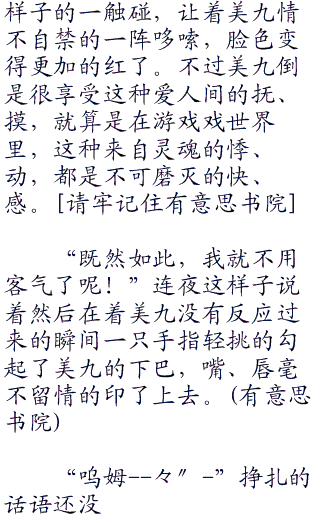 样子的一触碰，让着美九情
不自禁的一阵哆嗦，脸色变
得更加的红了。不过美九倒
是很享受这种爱人间的抚、
摸，就算是在游戏戏世界
里，这种来自灵魂的悸、
动，都是不可磨灭的快、
感。[请牢记住有意思书院]
“既然如此，我就不用
客气了呢！”连夜这样子说
着然后在着美九没有反应过
来的瞬间一只手指轻挑的勾
起了美九的下巴，嘴、唇毫
不留情的印了上去。(有意思
书院)
“呜姆--々〞-”挣扎的
话语还没